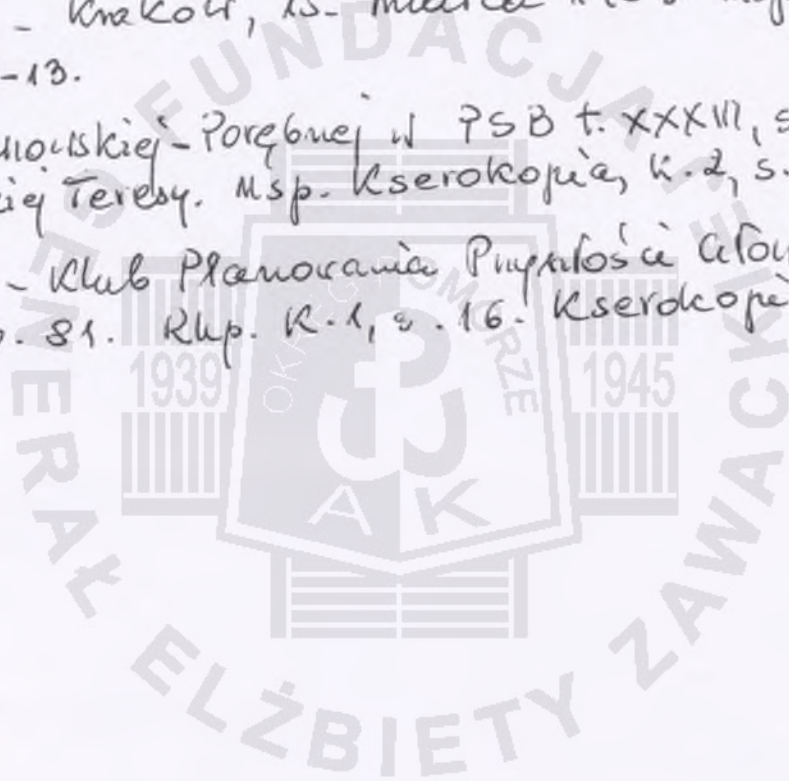 - Kraków, 13-
-13.
nowskiej-Porębnej W PSB t. XXXVII, s
iej Teresy. Msp. Kserokopia, K.2, s.
- Klub Planowania Przyszłości
. 81. Rkp. K.1, s. 16. Kserokopi
FUNDACJA GENERAŁ ELŻBIETY ZAWACKIEJ
OKRĘG POMORZE
1939
1945
AK